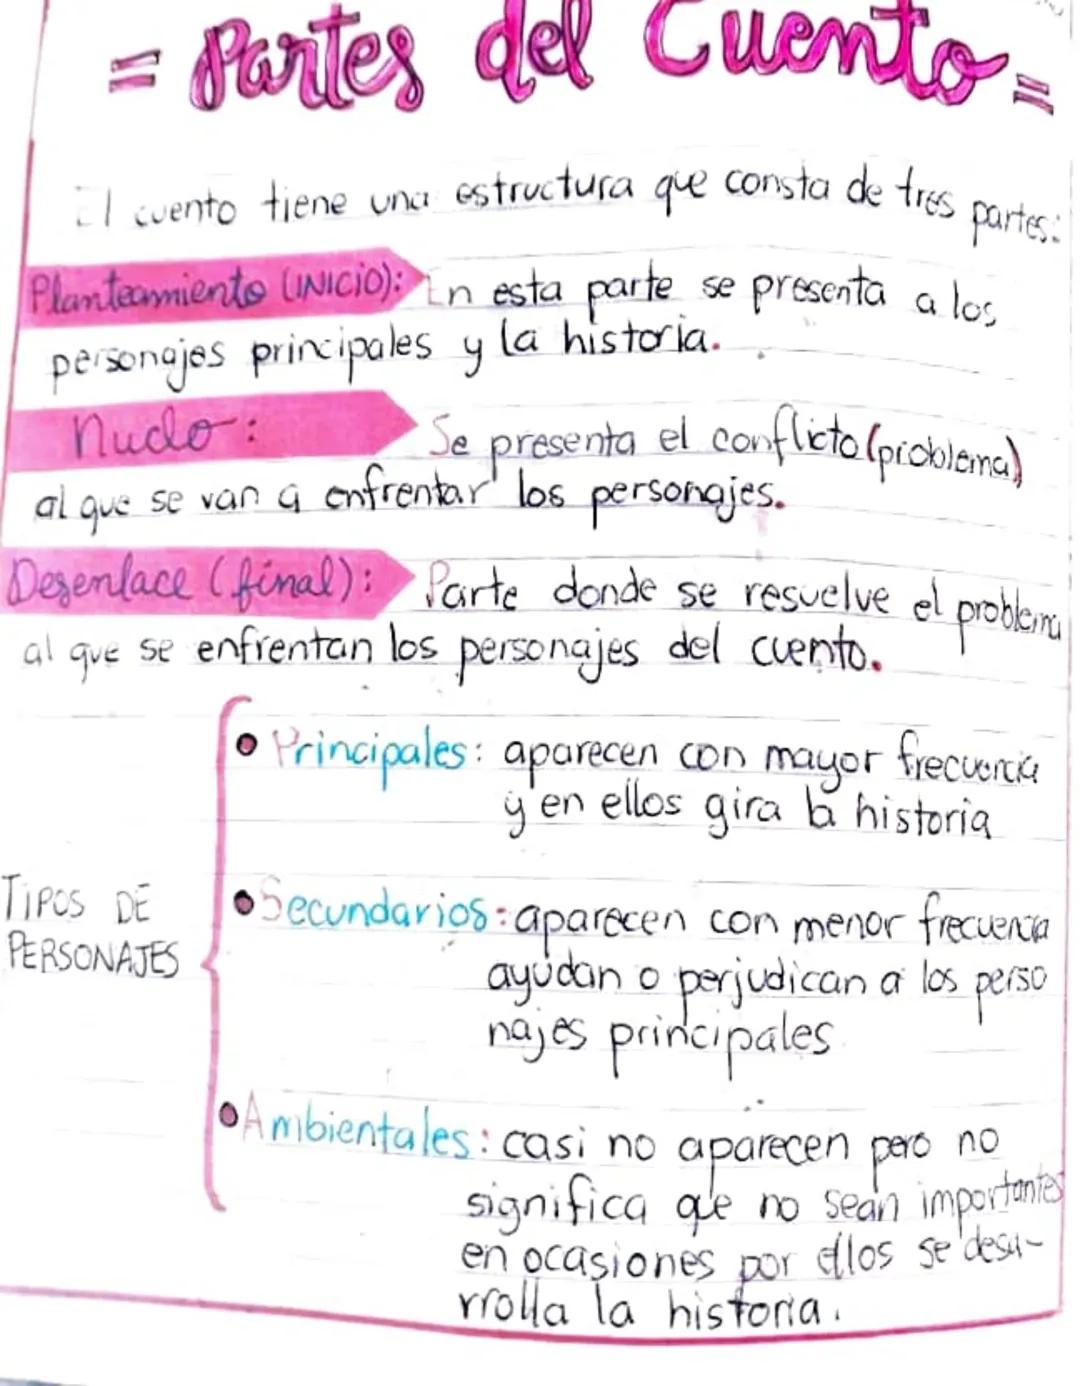 = Partes del Cuento =
El cuento tiene una estructura que consta de tres partes:
Planteamiento (INICIO): En esta parte se presenta a los
personajes principales y la historia.
Nudo: Se presenta el conflicto (problema)
al que se van a enfrentar los personajes.
Desenlace (final): Parte donde se resuelve el problema
al que se enfrentan los personajes del cuento.
• Principales: aparecen con mayor frecuencia
y en ellos gira la historia
TIPOS DE
PERSONAJES
• Secundarios: aparecen con menor frecuencia
ayudan o perjudican a los perso
najes principales
• Ambientales: casi no aparecen pero no
significa que no sean importantes
en ocasiones por ellos se desa-
rrolla la historia.